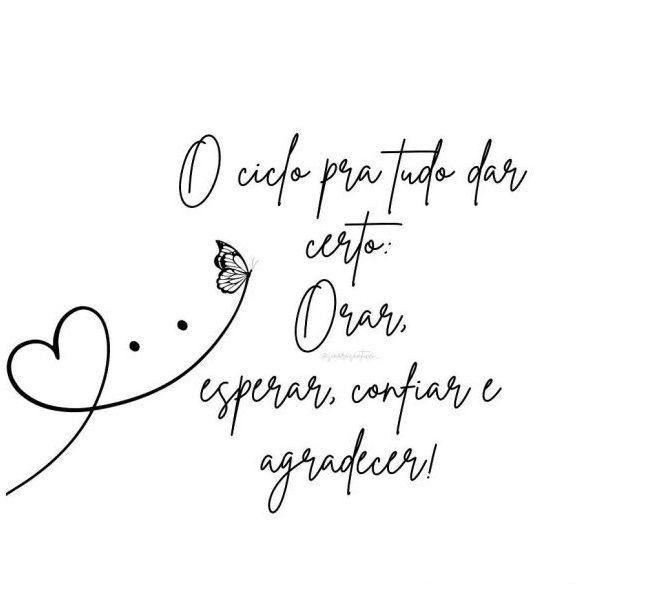 O ciclo pra tudo dar
certo:
Orar,
esperar, confiar e
agradecer!